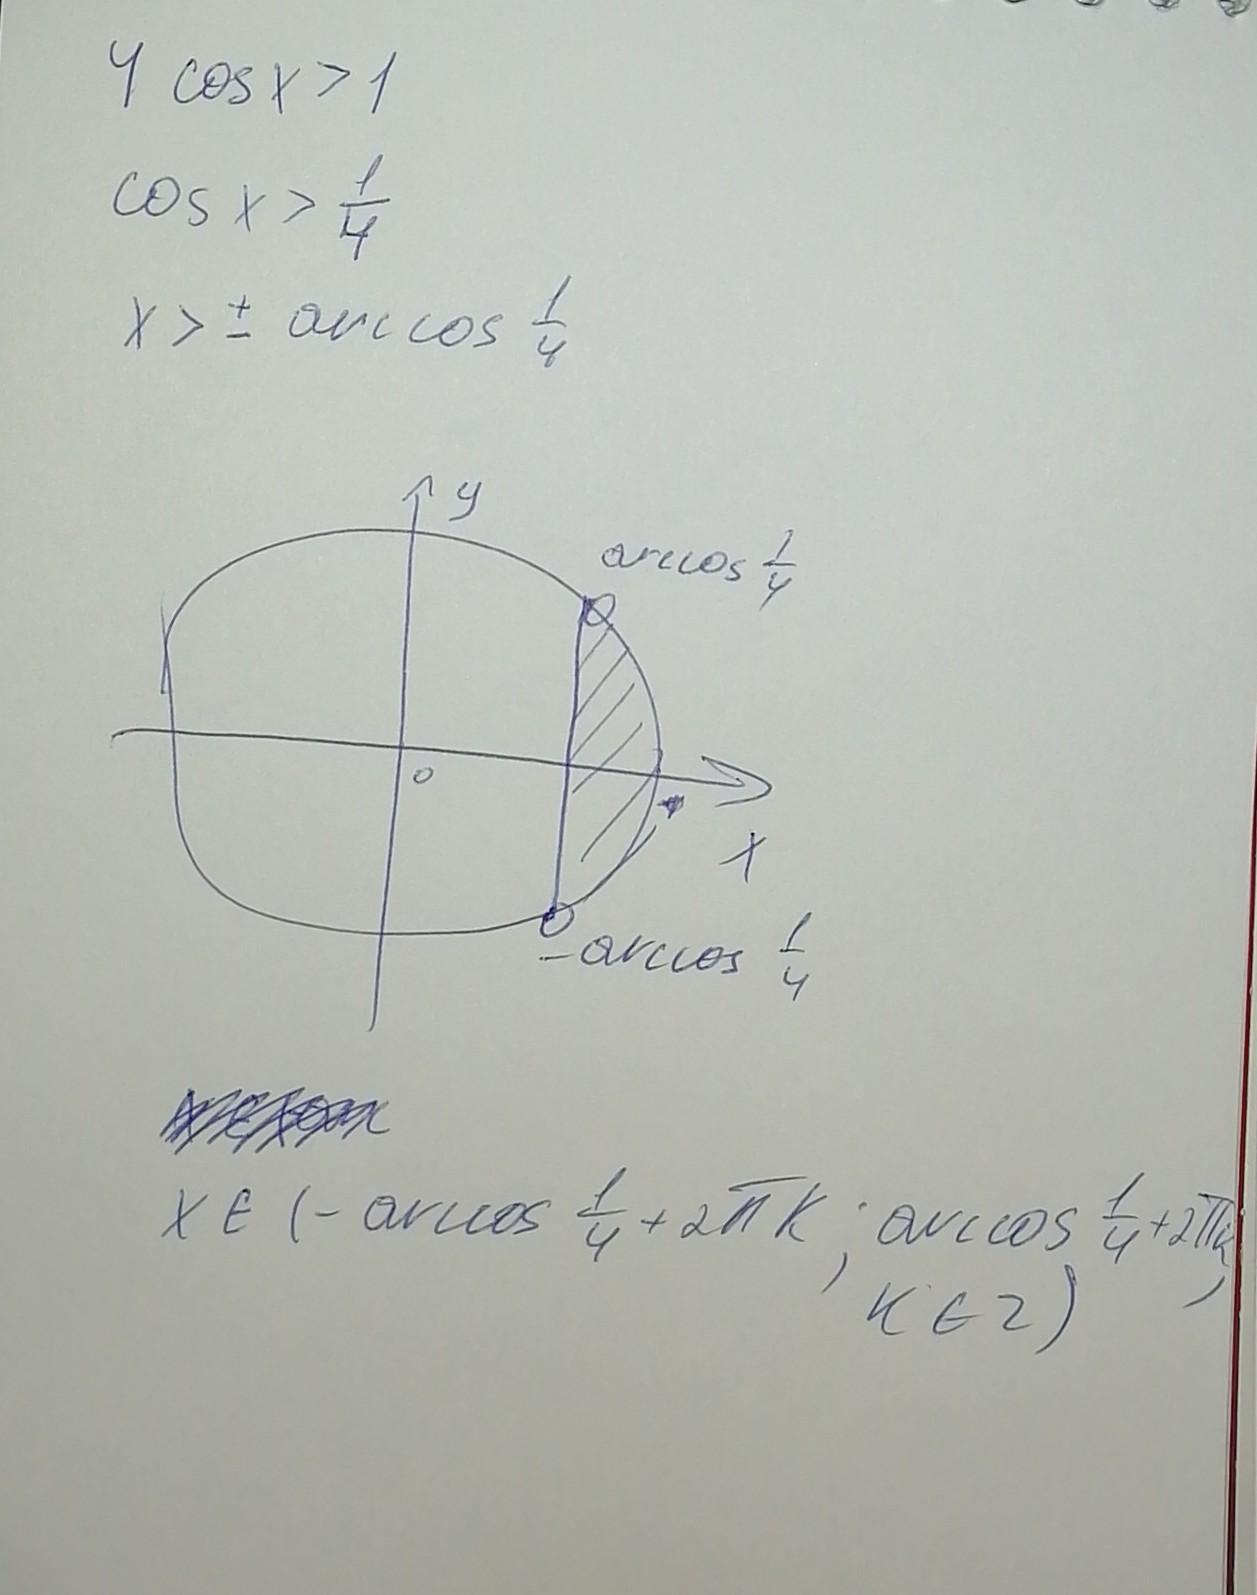 4 cos x > 1
cos x > 1/4
x > ± arccos 1/4
y
arccos 1/4
0
x
-arccos 1/4
x ∈ (- arccos 1/4 + 2πk ; arccos 1/4 + 2πk,
k ∈ Z)